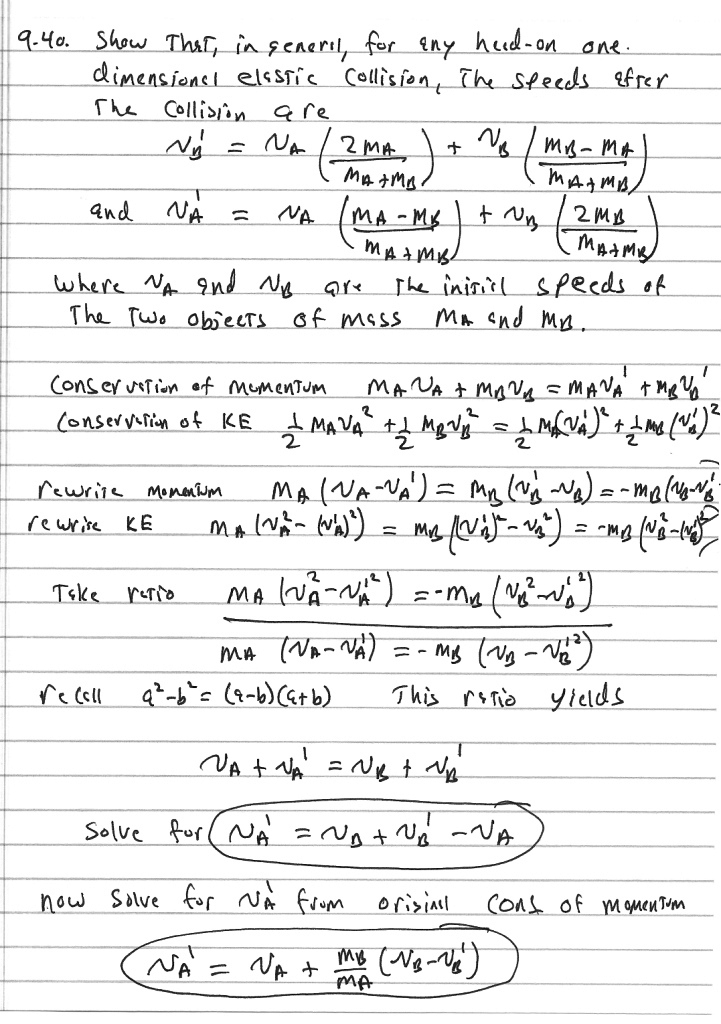 9.40. Show That, in general, for any head-on one-
dimensional elastic collision, The speeds after
The collision are
v_B' = v_A (2m_A / (m_A + m_B)) + v_B ((m_B - m_A) / (m_A + m_B))
and v_A' = v_A ((m_A - m_B) / (m_A + m_B)) + v_B (2m_B / (m_A + m_B))
where v_A and v_B are The initial speeds of
The Two objects of mass m_A and m_B.
Conservation of momentum m_A v_A + m_B v_B = m_A v_A' + m_B v_B'
Conservation of KE 1/2 m_A v_A² + 1/2 m_B v_B² = 1/2 m_A (v_A')² + 1/2 m_B (v_B')²
rewrite momentum m_A (v_A - v_A') = m_B (v_B' - v_B) = -m_B (v_B - v_B'
rewrite KE m_A (v_A² - (v_A')²) = m_B ((v_B')² - v_B²) = -m_B (v_B² - (v_B')²)
Take ratio m_A (v_A² - v_A'²) = -m_B (v_B² - v_B'²)
m_A (v_A - v_A') = -m_B (v_B - v_B'²)
recall a² - b² = (a-b)(a+b) This ratio yields
v_A + v_A' = v_B + v_B'
Solve for v_A' = v_B + v_B' - v_A
now solve for v_A' from original cons of momentum
v_A' = v_A + m_B/m_A (v_B - v_B')